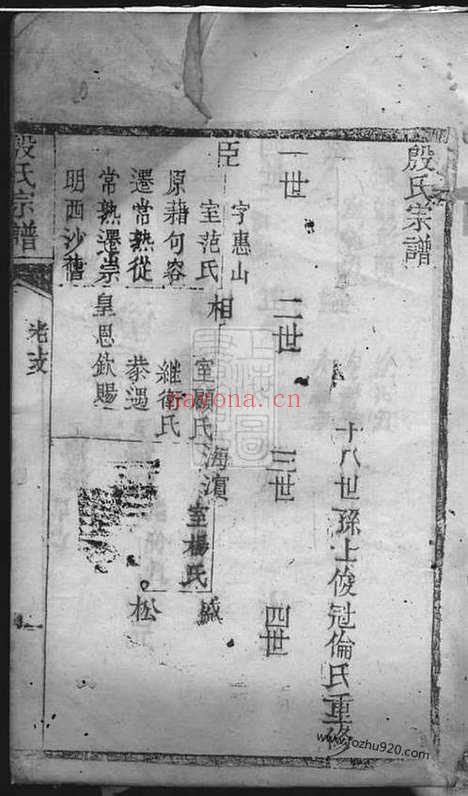 殷氏宗譜
十八世孫上俊冠倫氏重修
一世
二世
三世
四世
臣
字惠山
室范氏
原籍句容
遷常熟從
常熟遷崇
明西沙舊
相
室顧氏
繼衛氏
恭遇
皇恩欽賜
海濵
室楊氏
盛
松
殷氏宗譜
老支
nayona.cn
www.fozhu920.com